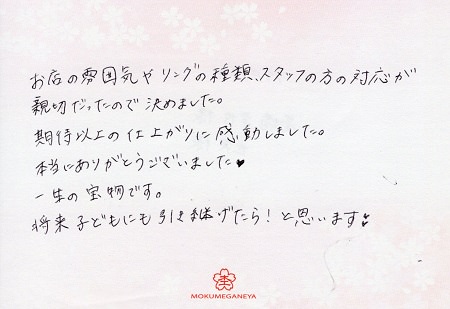 お店の雰囲気やリングの種類、スタッフの方の対応が
親切だったので決めました。
期待以上の仕上がりに感動しました。
本当にありがとうございました♥
一生の宝物です。
将来子どもにも引き継げたら！と思います♥
MOKUMEGANEYA